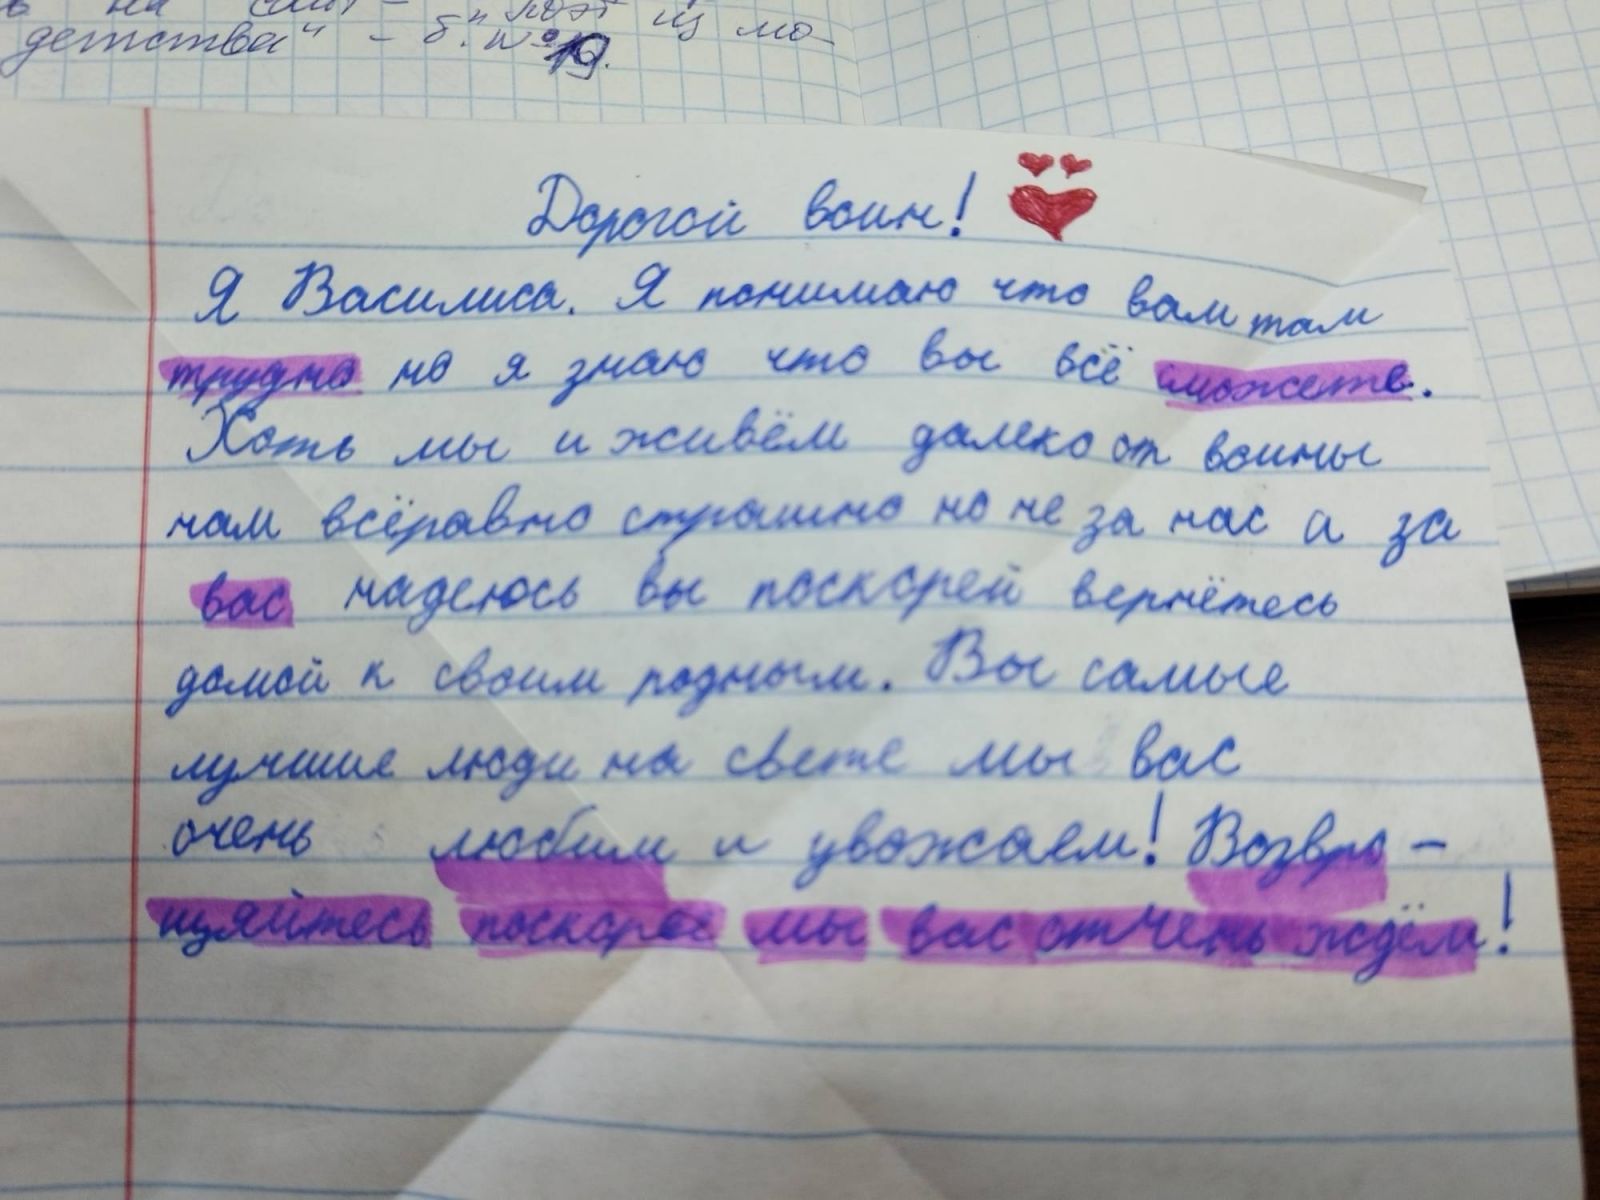 на
детства" - б. "поэт из мо-
№19.
Дорогой воин!
Я Василиса. Я понимаю что вам там
трудно но я знаю что вы всё сможете.
Хоть мы и живём далеко от воины
нам всёравно страшно но не за нас а за
вас надеюсь вы поскорей вернётесь
домой к своим родным. Вы самые
лучшие люди на свете мы вас
очень любим и уважаем! Возвра-
щяйтесь поскорее мы вас отчень ждём!